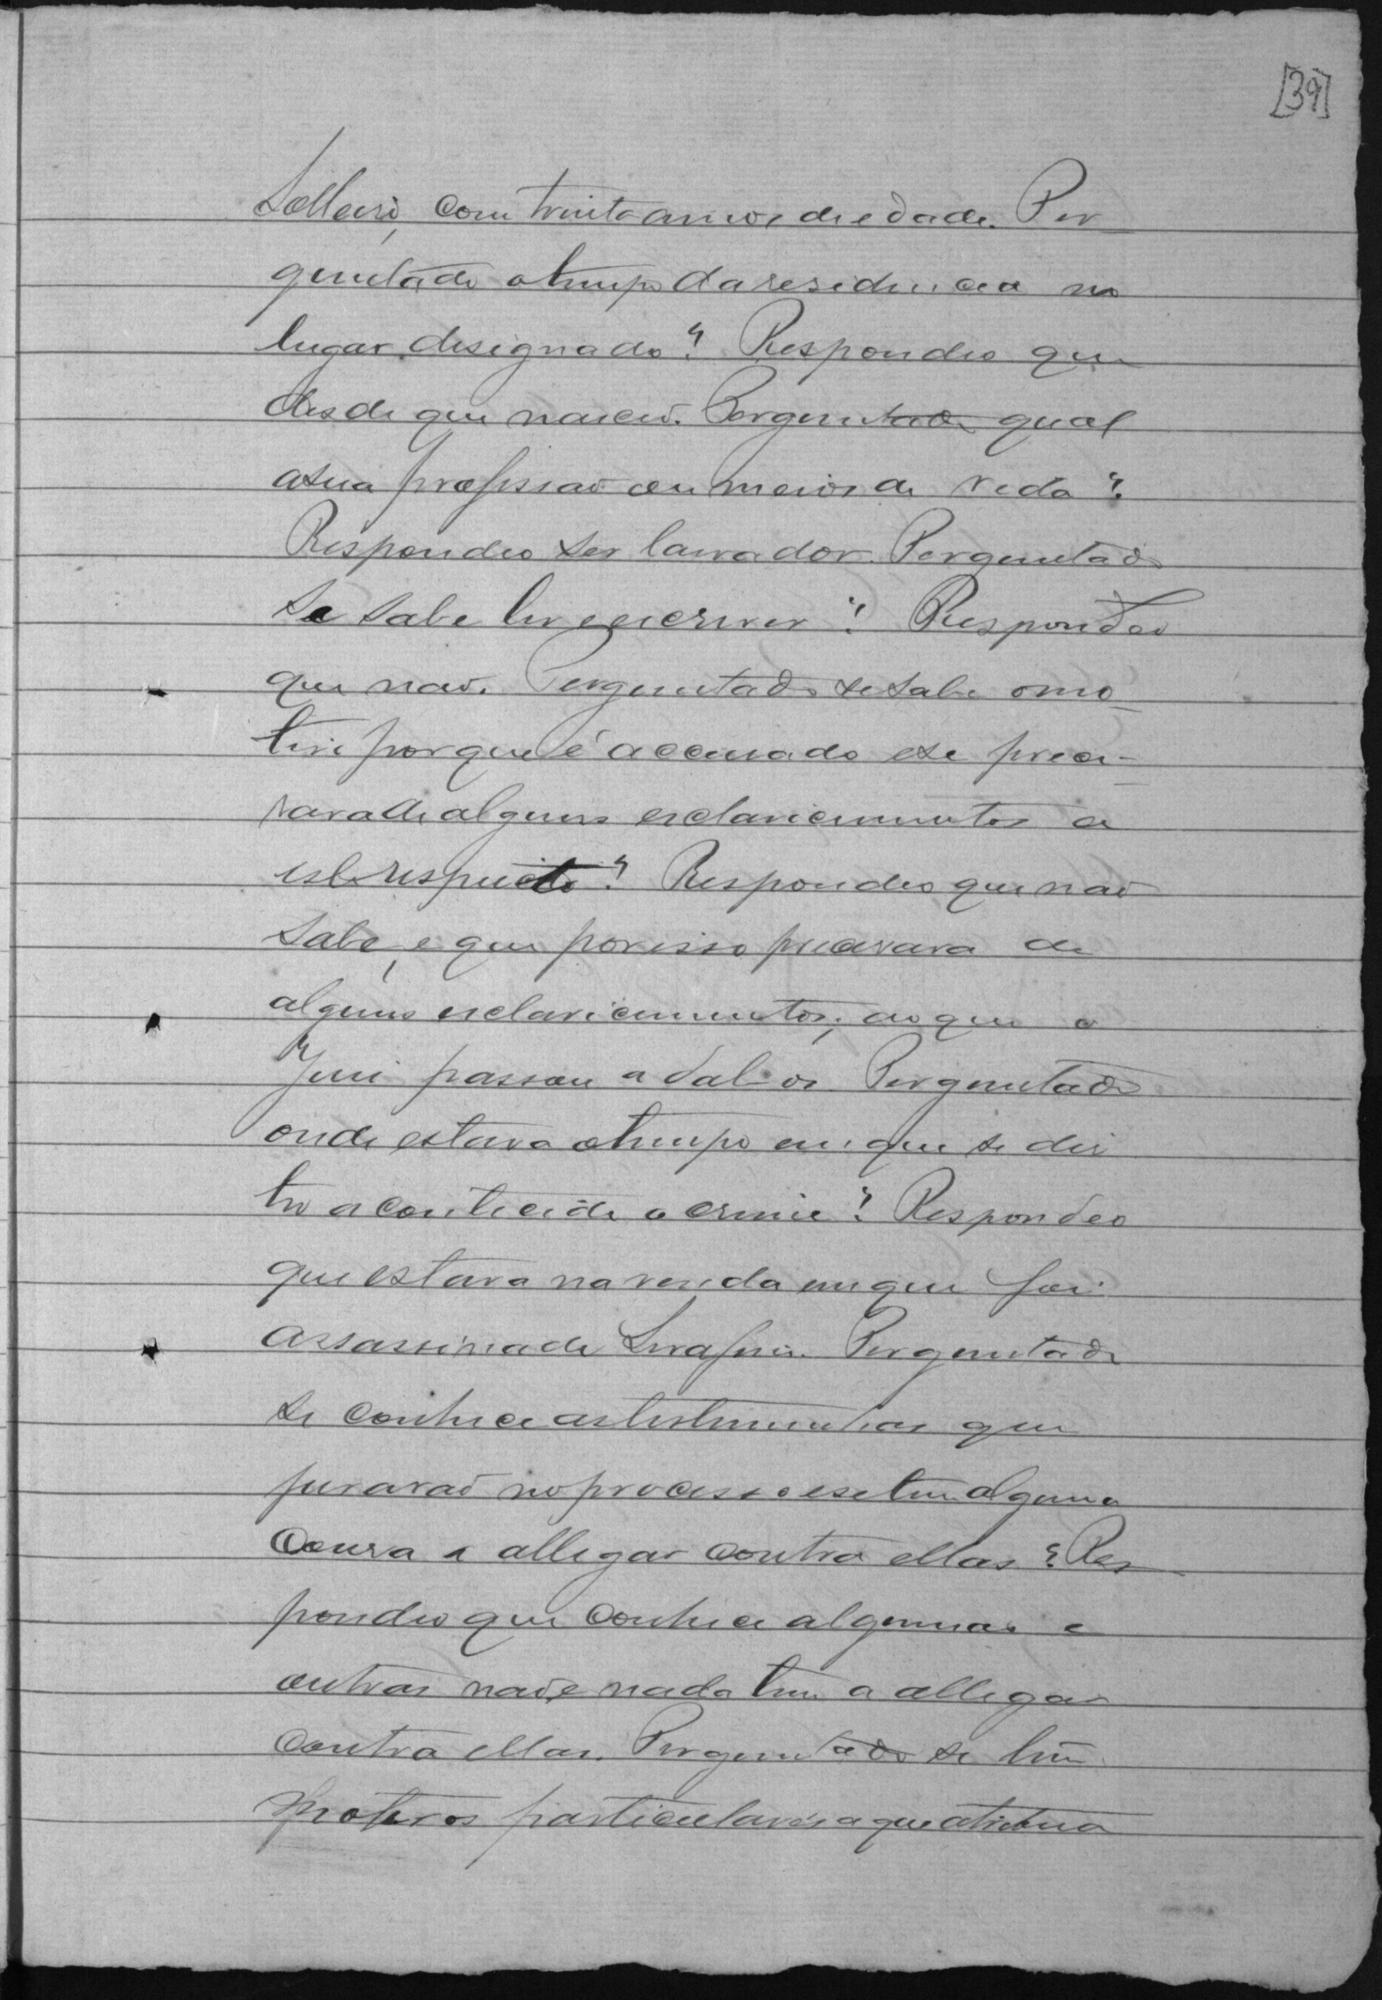 [39]
Solteiro, com trinta annos de edade. Per-
guntado o tempo da residencia no
lugar designado? Respondeo que
desde que nasceu. Perguntado qual
a sua profissão ou meios de vida?
Respondeo ser lavrador. Perguntado
se sabe ler e escrever? Respondeo
que não. Perguntado se sabe o mo-
tivo porque é accusado e se preci-
sava de alguns esclarecimentos a
este respeito? Respondeo que não
sabe, e que por isso precisava de
alguns esclarecimentos, ao que o
Juiz passou a dal-os. Perguntado
onde estava o tempo em que se diz
ter acontecido o crime? Respondeo
que estava na venda em que foi
assassinado Serafim. Perguntado
se conhece as testemunhas que
jurarão no processo e se tem alguma
cousa a allegar contra ellas? Res-
pondeo que conhece algumas e
outras não, e nada tem a allegar
contra ellas. Perguntado se tem
motivos particulares a que attribua